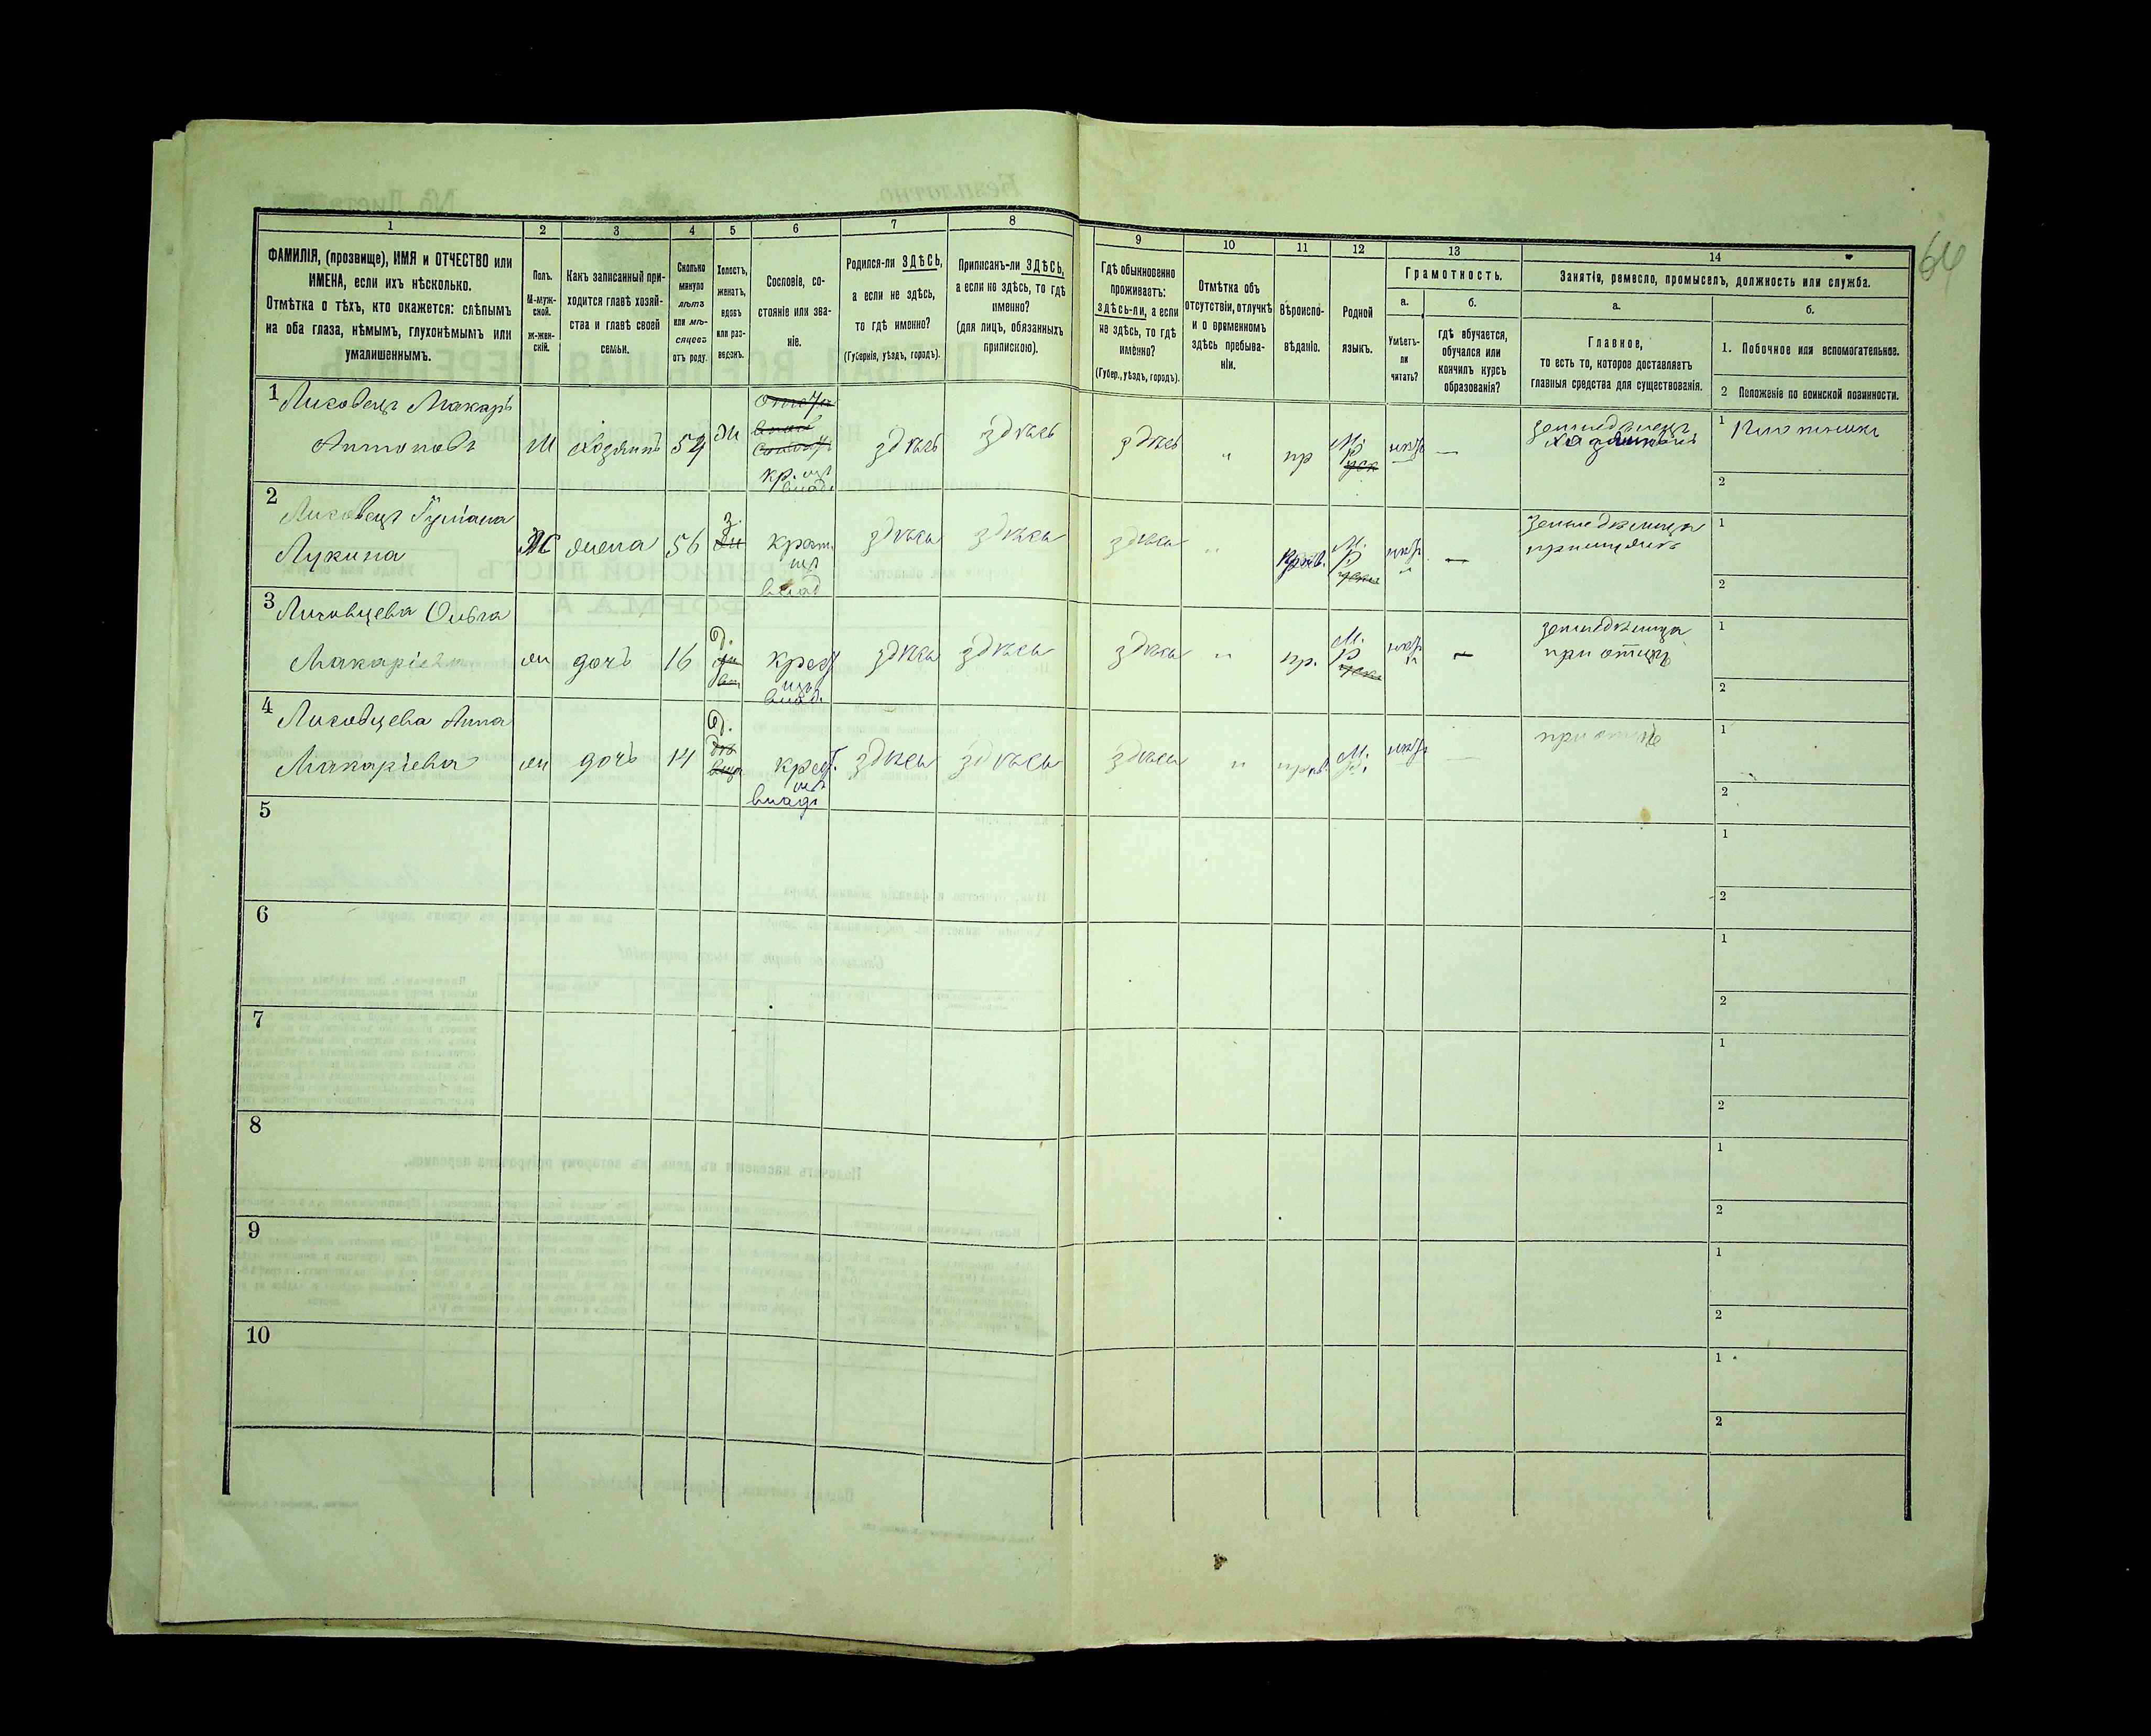 64
1 2 3 4 5 6 7 8 9 10 11 12 13 14
ФАМИЛІЯ, (прозвище), ИМЯ и ОТЧЕСТВО или
ИМЕНА, если ихъ нѣсколько.
Отмѣтка о тѣхъ, кто окажется: слѣпымъ
на оба глаза, нѣмымъ, глухонѣмымъ или
умалишеннымъ.
Полъ.
М-муж-
ской.
ж-жен-
скій.
Какъ записанный при-
ходится главѣ хозяй-
ства и главѣ своей
семьи.
Сколько
минуло
лѣтъ
или мѣ-
сяцевъ
отъ роду.
Холостъ,
женатъ,
вдовъ
или раз-
веденъ.
Сословіе, со-
стояніе или зва-
ніе.
Родился-ли ЗДѢСЬ,
а если не здѣсь,
то гдѣ именно?
(Губернія, уѣздъ, городъ).
Приписанъ-ли ЗДѢСЬ,
а если не здѣсь, то гдѣ
именно?
(для лицъ, обязанныхъ
припискою).
Гдѣ обыкновенно
проживаетъ:
здѣсь-ли, а если
не здѣсь, то гдѣ
именно?
(Губер., уѣздъ, городъ).
Отмѣтка объ
отсутствіи, отлучкѣ
и о временномъ
здѣсь пребыва-
ніи.
Вѣроиспо-
вѣданіе.
Родной
языкъ.
Грамотность.
а.
Умѣетъ-
ли
читать?
б.
гдѣ обучается,
обучался или
кончилъ курсъ
образованія?
Занятія, ремесло, промыселъ, должность или служба.
а.
Главное,
то есть то, которое доставляетъ
главныя средства для существованія.
б.
1. Побочное или вспомогательное.
2 Положеніе по воинской повинности.
1 Лисовецъ Макаръ
Антоновъ М хозяинъ 54 ж здѣсь здѣсь здѣсь " пр М. Р нѣтъ —
земледѣлецъ
1 Плотникъ
2
2 Лисовецъ
Лукина Ж жена 56 з. здѣсь здѣсь здѣсь " прав. М. Р нѣтъ —
влад
1
2
3 Лисовцева Ольга
Макаріева ж дочь 16 д. крест здѣсь здѣсь здѣсь " пр. М. Р нѣтъ —
влад.
земледѣлица
при отцѣ
1
2
4 Лисовцева Анна
Макаріева ж дочь 14 д. крест. здѣсь здѣсь здѣсь " прав. М. Р. нѣтъ —
влад
при отцѣ
1
2
5
1
2
6
1
2
7
1
2
8
1
2
9
1
2
10
1
2